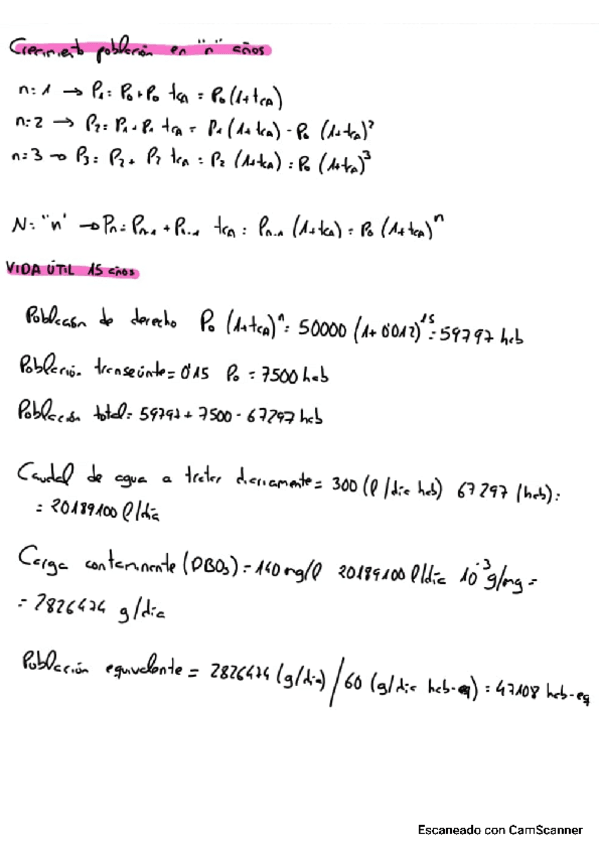 Crecimiento población en "n" años
n: 1 → P₁ = P₀ + P₀ tca = P₀ (1+tca)
n: 2 → P₂ = P₁ + P₁ tca = P₁ (1+tca) = P₀ (1+tca)²
n: 3 → P₃ = P₂ + P₂ tca = P₂ (1+tca) = P₀ (1+tca)³
N: "n" → Pn = Pn-1 + Pn-1 tca = Pn-1 (1+tca) = P₀ (1+tca)ⁿ
VIDA ÚTIL 15 años
Población de derecho P₀ (1+tca)ⁿ = 50000 (1+0'012)¹⁵ = 59797 hab
Población transeúnte = 0'15 P₀ = 7500 hab
Población total = 59797 + 7500 = 67297 hab
Caudal de agua a tratar diariamente = 300 (l/día hab) 67297 (hab) =
= 20189100 l/día
Carga contaminante (DBO₅) = 140 mg/l 20189100 l/día 10⁻³ g/mg =
= 2826474 g/día
Población equivalente = 2826474 (g/día) / 60 (g/día hab-eq) = 47108 hab-eq
Escaneado con CamScanner